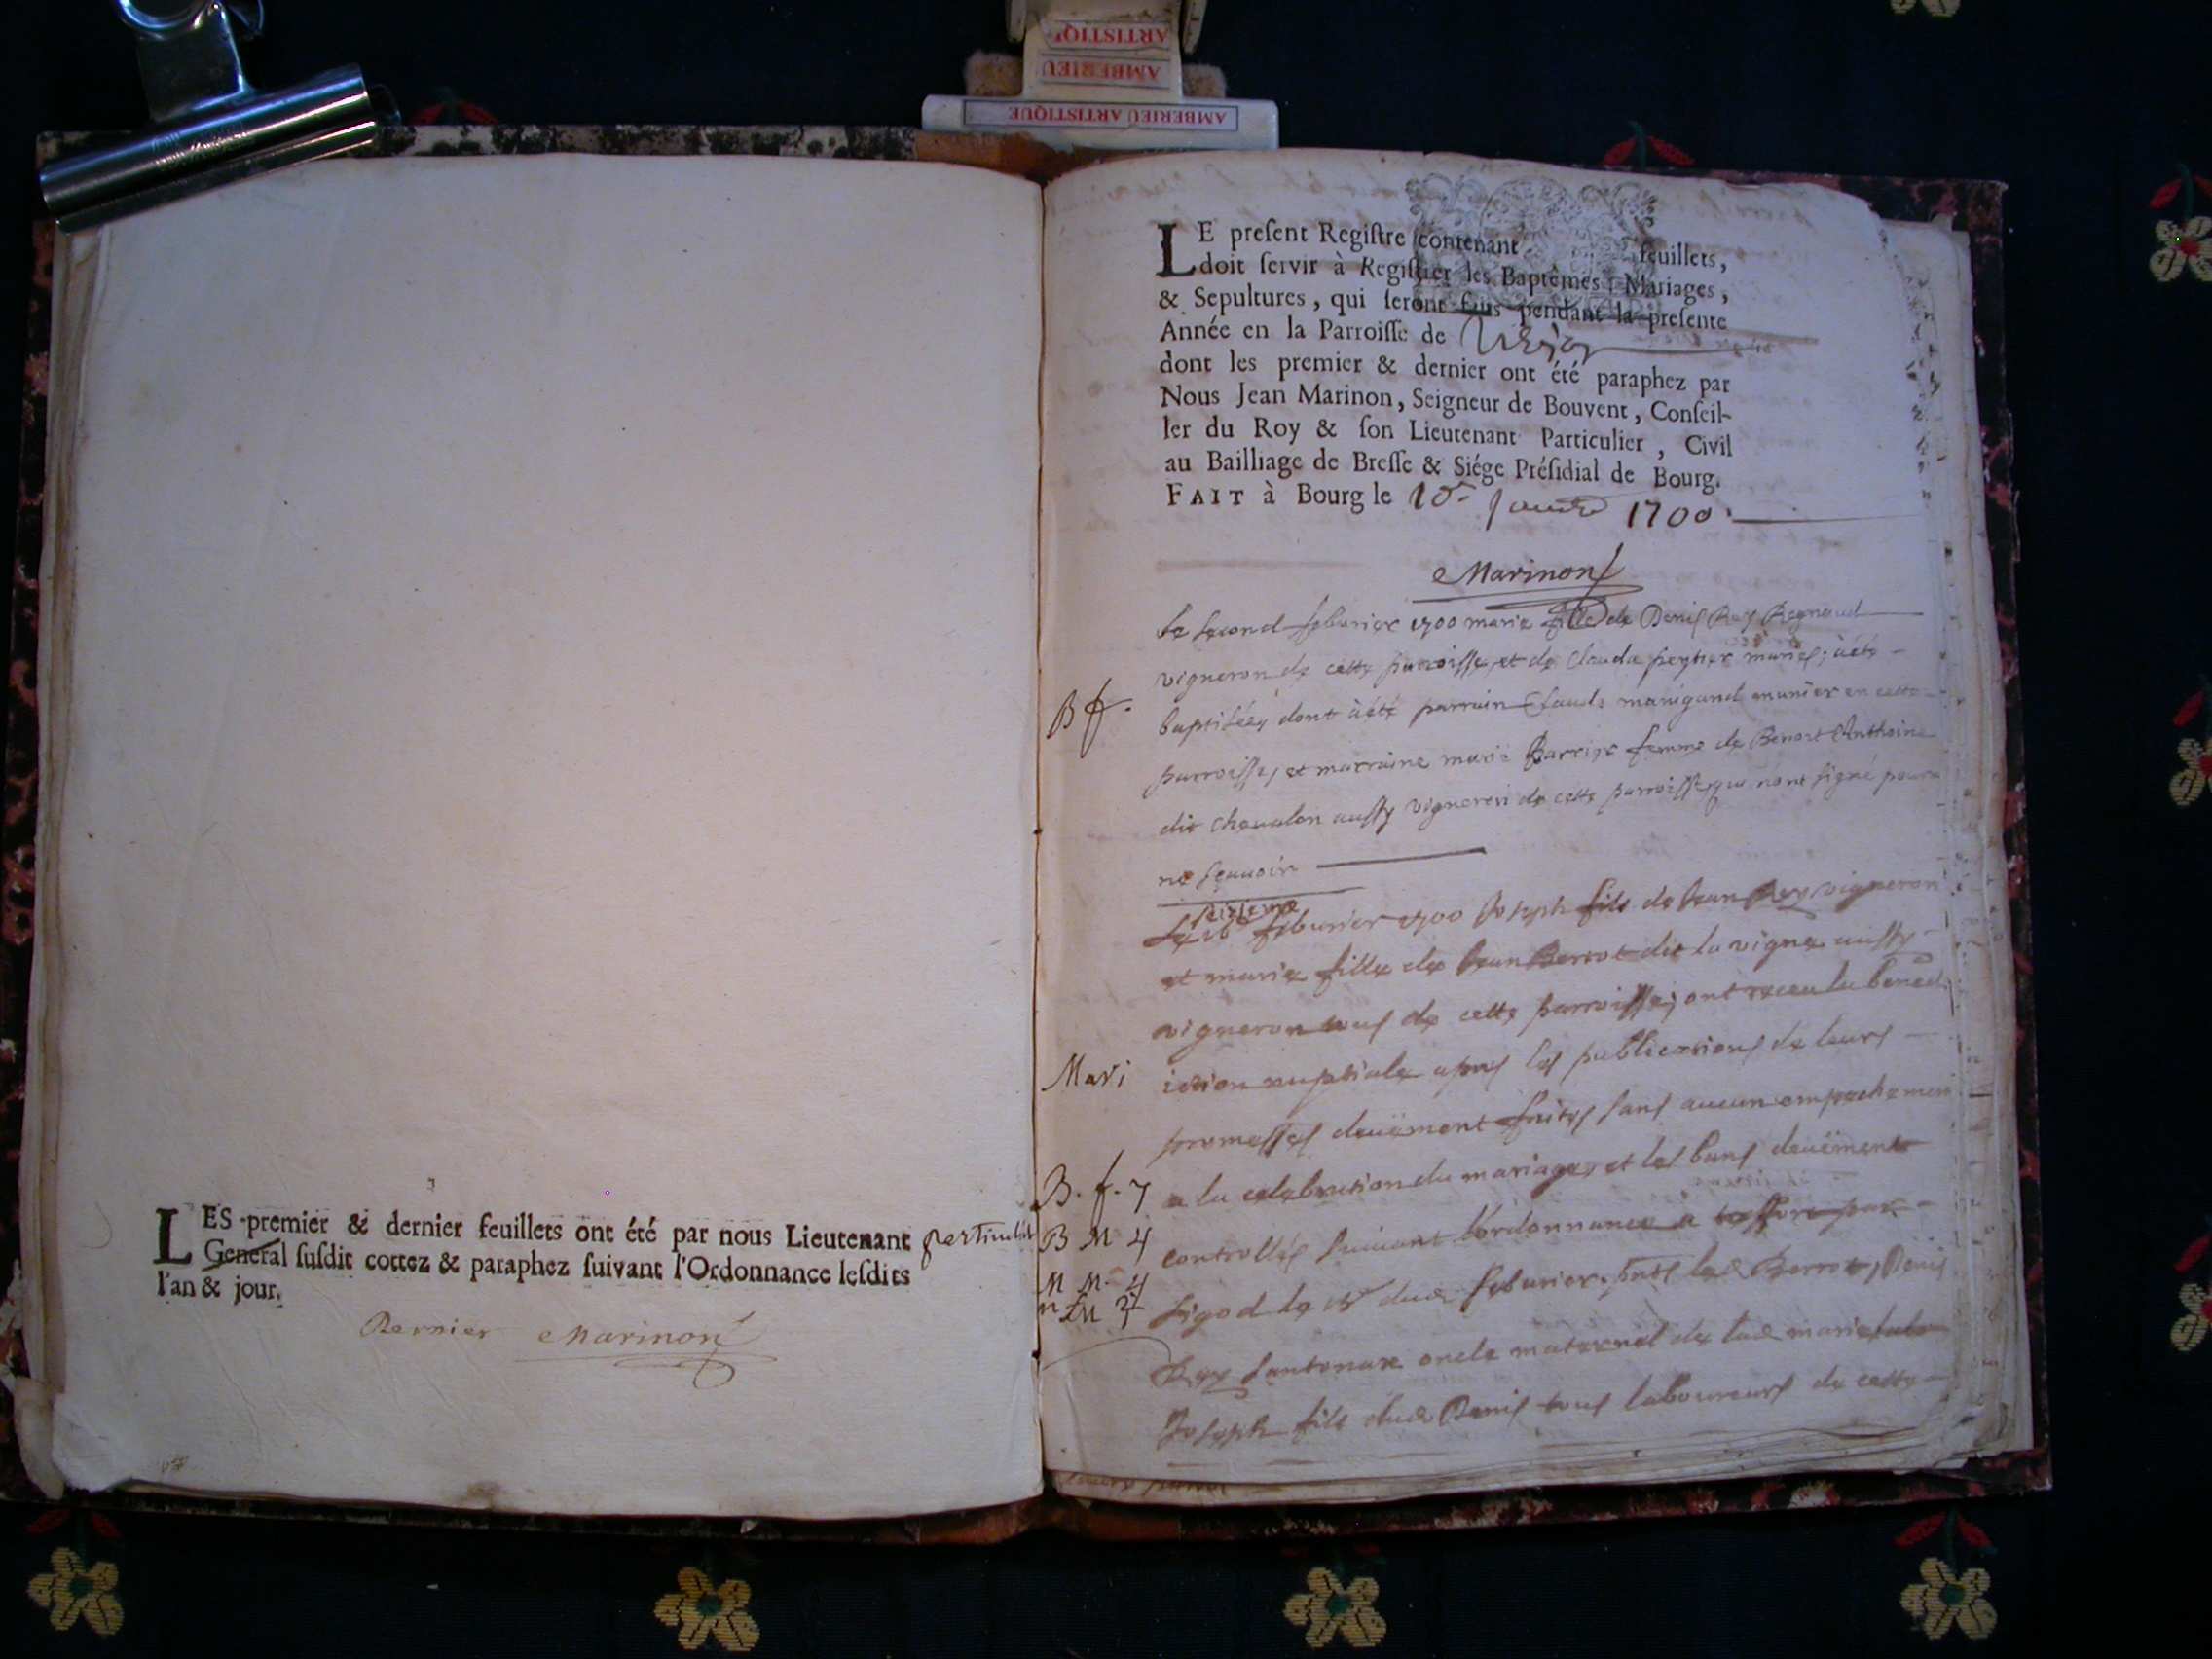 ARTISTIQ
AMBERIEU
AMBERIEU ARTISTIQUE
LES premier & dernier feuillets ont été par nous Lieutenant particulier
General susdit cottez & paraphez suivant l'Ordonnance lesdits
l'an & jour.
Dernier Marinon
LE present Registre contenant feuillets,
doit servir à Registrer les Baptêmes, Mariages,
& Sepultures, qui seront faits pendant la presente
Année en la Parroisse de
dont les premier & dernier ont été paraphez par
Nous Jean Marinon, Seigneur de Bouvent, Conseil-
ler du Roy & son Lieutenant Particulier, Civil
au Bailliage de Bresse & Siége Présidial de Bourg.
FAIT à Bourg le 10e Janvier 1700.
Marinon
Le second feburier 1700 marie fille de Denis Rey Regnaud
vigneron de cette parroisse, et de Clauda peytier mariés; à été
B f.
baptisée, dont à été parrain Claude manigand munier en cette
parroisse, et marraine marie Barrier femme de Benoit Anthoine
dit chevalon aussy vigneron de cette parroisse, qui n'ont signé pour
ne sçauoir
seizieme
Le 16e feburier 1700 Joseph fils de Jean Rey vigneron
et marie fille de Jean Berrot dit la vigne aussy
vigneron tous de cette parroisse; ont receu la bened
Mari
iction nuptiale apres les publications de leurs
promesses deuëment faites sans aucun empechemen
B. f. 7
a la celebration du mariage, et les bans deuëment
B M 4
controllés suiuant l'ordonnance a par
M M. 4
ligod le 15e dud feburier, led Berrot, Denis
Rey oncle maternel de lad marie
Joseph fils dud Denis tous laboureurs de cette